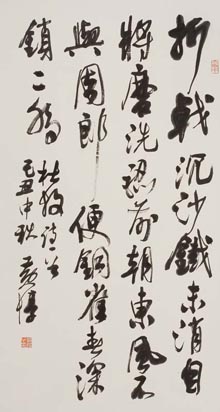 折戟沉沙鐵未消自
將磨洗認前朝東風不
與周郎便銅雀春深
鎖二喬
杜牧詩
己丑中秋